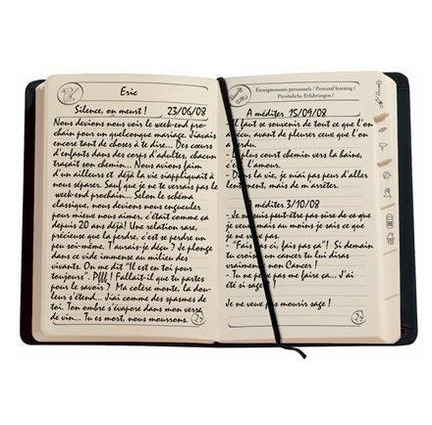 Eric
Silence, on meurt ! 23/06/08
Nous devions nous voir le week-end pro-
chain pour un quelconque mariage. J'avais
encore tant de choses à te dire... Des cœurs
d'enfants dans des corps d'adultes, chacun
traçait son chemin... Nous avions faim
d'un ailleurs et déjà la vie s'appliquait à
nous séparer. Sauf que je ne te verrais pas le
week-end prochain... Selon le schéma
classique, nous devions nous engueuler
pour mieux nous aimer, c'était comme ça
depuis 20 ans déjà! Une relation rare,
précieuse que la perdre, c'est se perdre un
peu soi-même. T'aurais-je déçu ? Je plonge
dans ce vide immense au milieu des
vivants. On me dit "Il est en toi pour
toujours". Pfff ! Fallait-il que tu partes
pour le savoir ? Ma colère monte, la dou-
leur s'étend... J'ai comme des spasmes de
toi. Ton ombre s'évapore dans mon verre
de vin... Tu es mort, nous mourrons.
Enseignements personnels / Personal learning /
Persönliche Erfahrungen /
A méditer 15/09/08
Il faut se souvenir de tout ce que l'on
a avant de pleurer ceux que l'on
a perdu.
Le plus court chemin vers la haine,
c'est l'amour.
Dans la vie, je n'ai pas peur d'aller
lentement, mais de m'arrêter.
méditer 3/10/08
- Je ne suis peut-être pas sûre de ce que
je veux mais au moins je sais ce que
je ne veux pas.
"Fais pas ci, fais pas ça"! Si demain
tu crois un cancer tu lui diras
vraiment non Cancer !
- Tu ne peux pas me faire ça... J'ai
été si sage !
Je ne veux pas mourir sage !